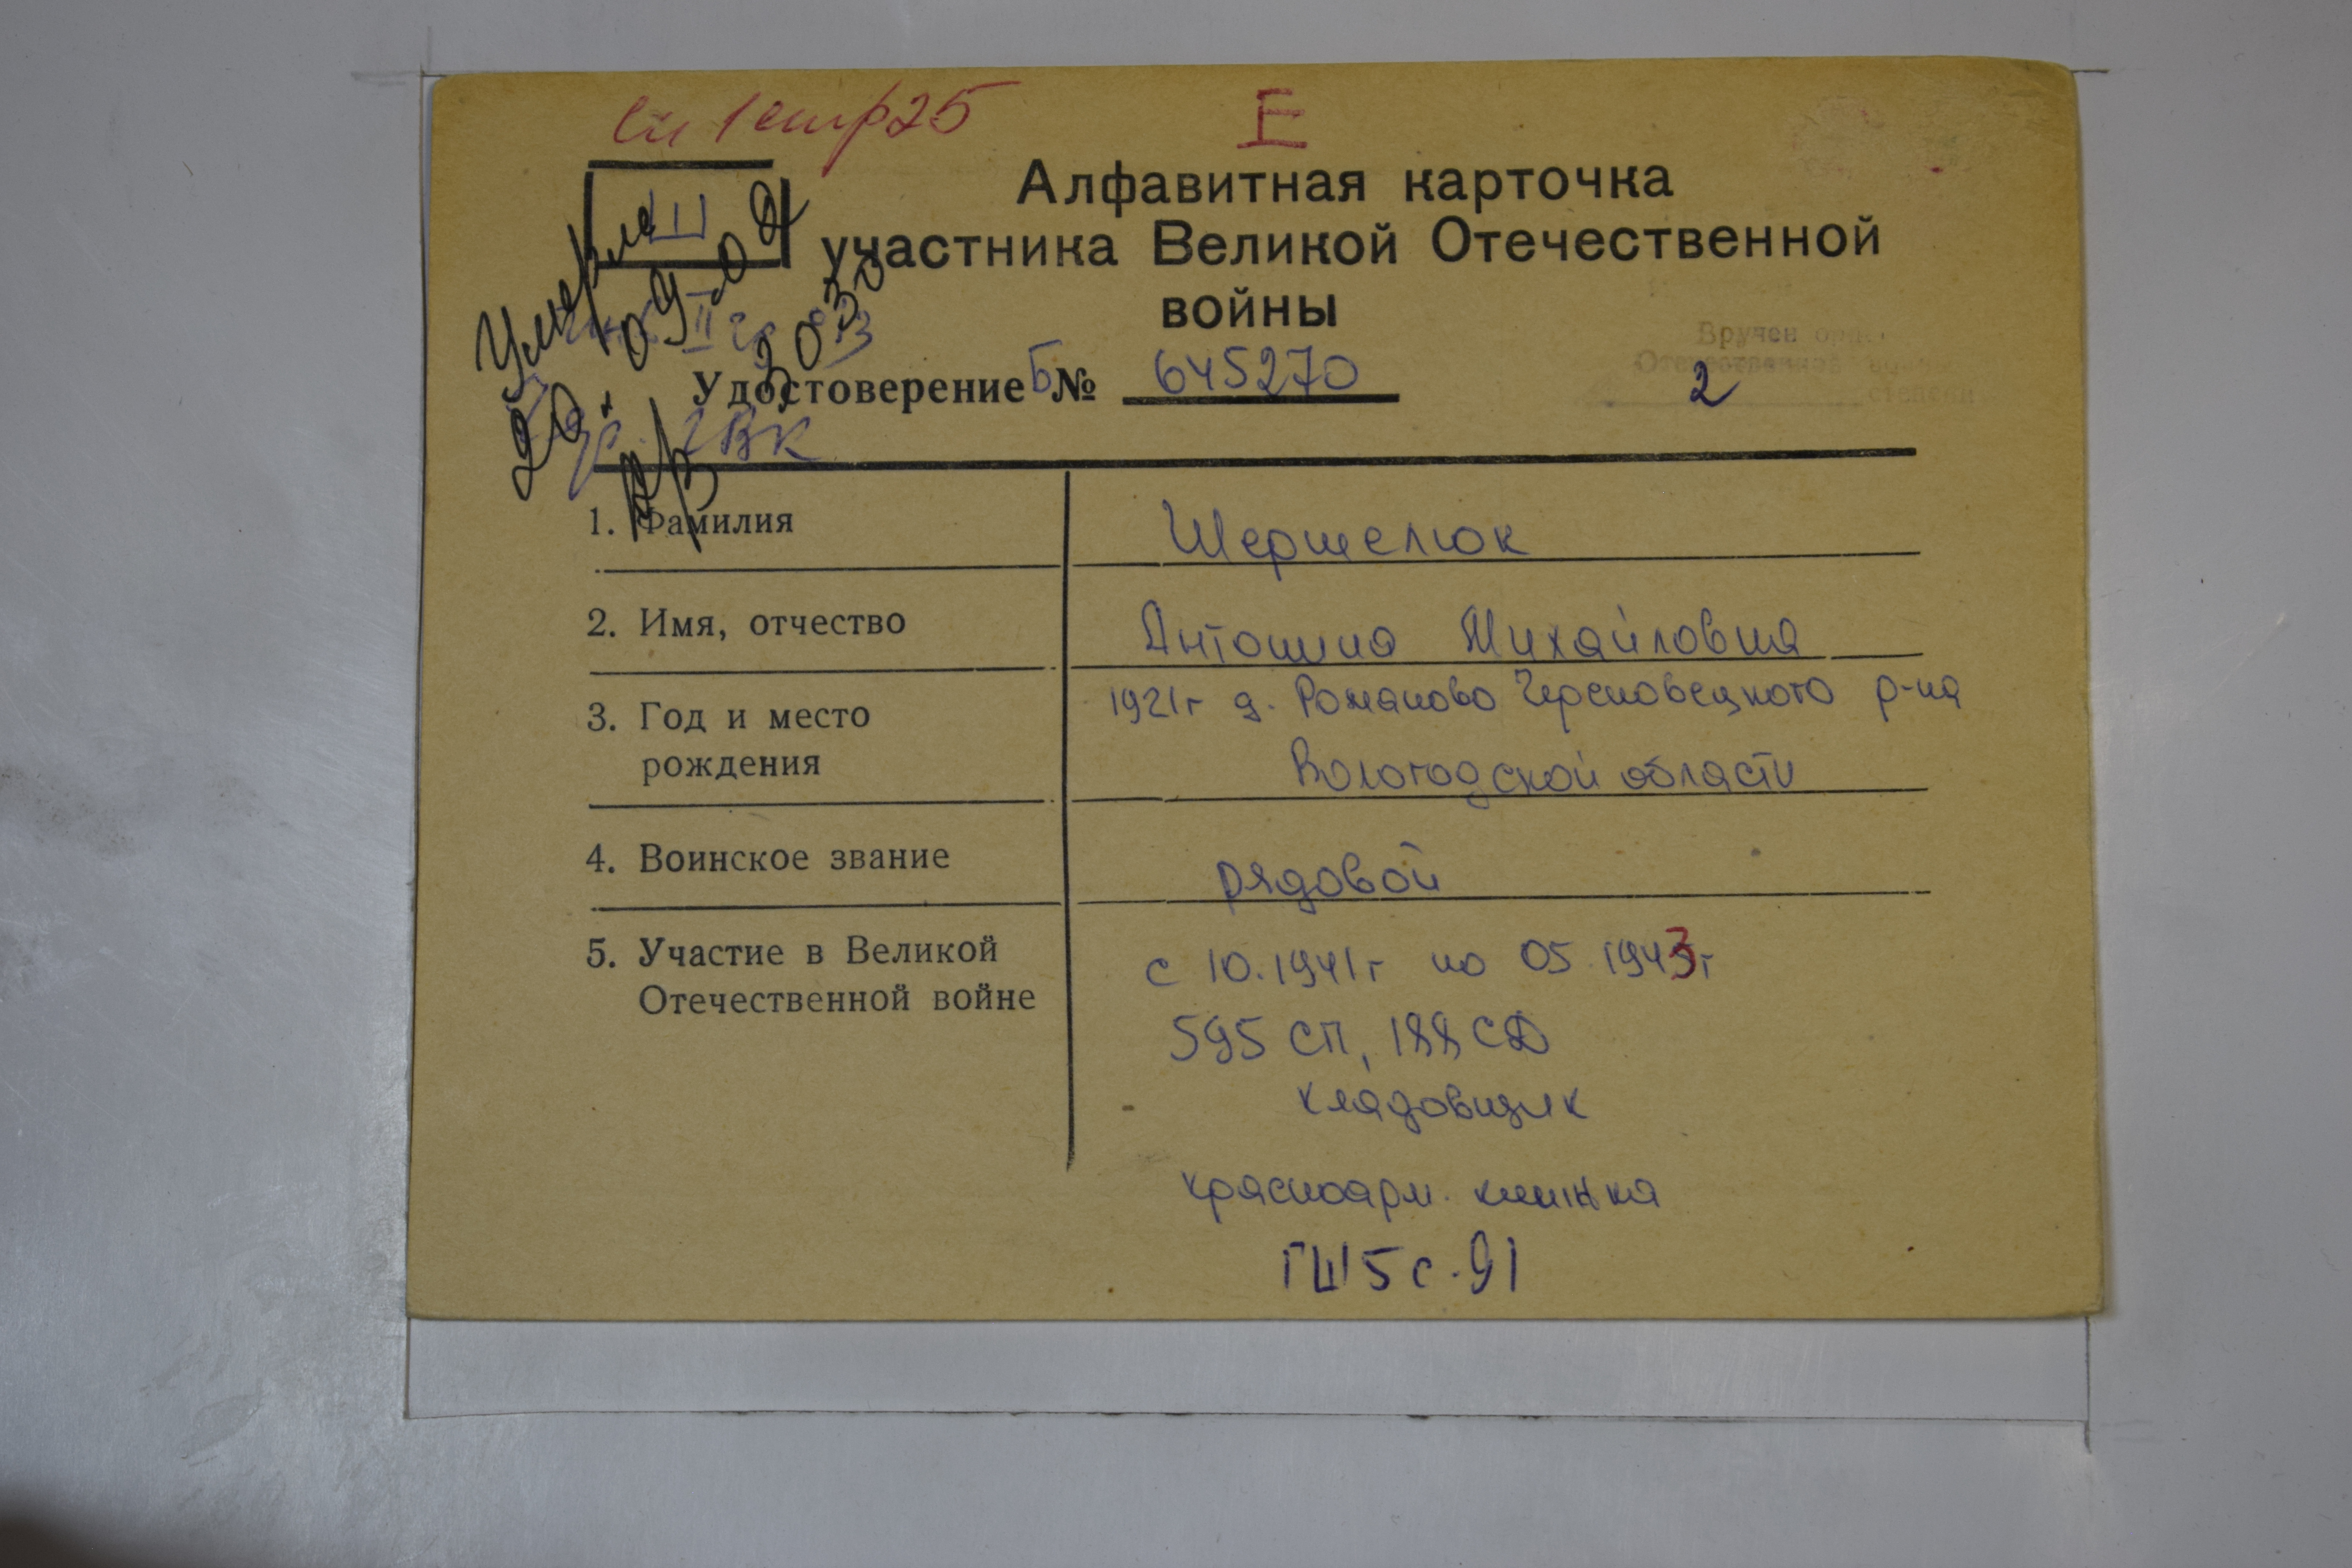 сп 1 стр 25
I
Алфавитная карточка
участника Великой Отечественной
войны
III
Умерла
20.09.02
II гр
ВК
Вручен орден
Отечественной войны
2 степени
Удостоверение Б № 645270
1. Фамилия
Шершелюк
2. Имя, отчество
Антонина Михайловна
3. Год и место
рождения
1921г д. Романово Череповецкого р-на
Вологодской области
4. Воинское звание
рядовой
5. Участие в Великой
Отечественной войне
с 10.1941г по 05.1943г
595 СП, 188 СД
кладовщик
красноарм. книжка
ГШ 5 с. 91